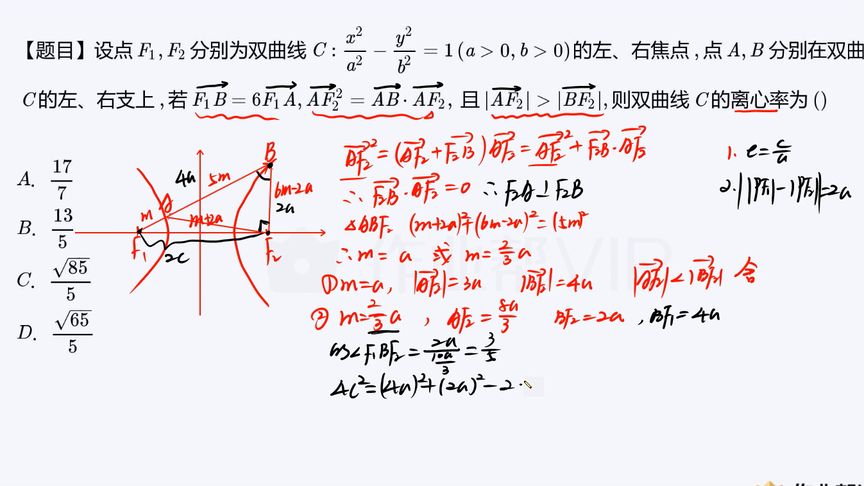 【题目】设点 F₁,F₂ 分别为双曲线 C: x²/a² − y²/b² = 1 (a > 0, b > 0)的左、右焦点,点 A, B 分别在双曲
C的左、右支上,若 \overrightarrow{F₁B} = 6\overrightarrow{F₁A}, \overrightarrow{AF₂}² = \overrightarrow{AB} · \overrightarrow{AF₂}, 且 |\overrightarrow{AF₂}| > |\overrightarrow{BF₂}|, 则双曲线 C的离心率为 ()
A. 17/7
B. 13/5
C. √85/5
D. √65/5
B
4a 5m
A
6m-2a
2a
m
m+2a
F₁ F₂
2c
\overrightarrow{AF₂}² = (\overrightarrow{AF₂} + \overrightarrow{F₂B}) \overrightarrow{AF₂} = \overrightarrow{AF₂}² + \overrightarrow{F₂B} · \overrightarrow{AF₂}
∴ \overrightarrow{F₂B} · \overrightarrow{AF₂} = 0 ∴ F₂A ⊥ F₂B
△ABF₂ (m+2a)² + (6m-2a)² = (5m)²
∴ m = a 或 m = 2/3 a
① m = a, |\overrightarrow{AF₂}| = 3a |\overrightarrow{BF₂}| = 4a |\overrightarrow{AF₂}| < |\overrightarrow{BF₂}| 舍
② m = 2/3 a , AF₂ = 8a/3 BF₂ = 2a , BF₁ = 4a
cos∠F₁BF₂ = 2a/(10a/3) = 3/5
4c² = (4a)² + (2a)² − 2 ·
1. e = c/a
2. ||PF₁| − |PF₂|| = 2a